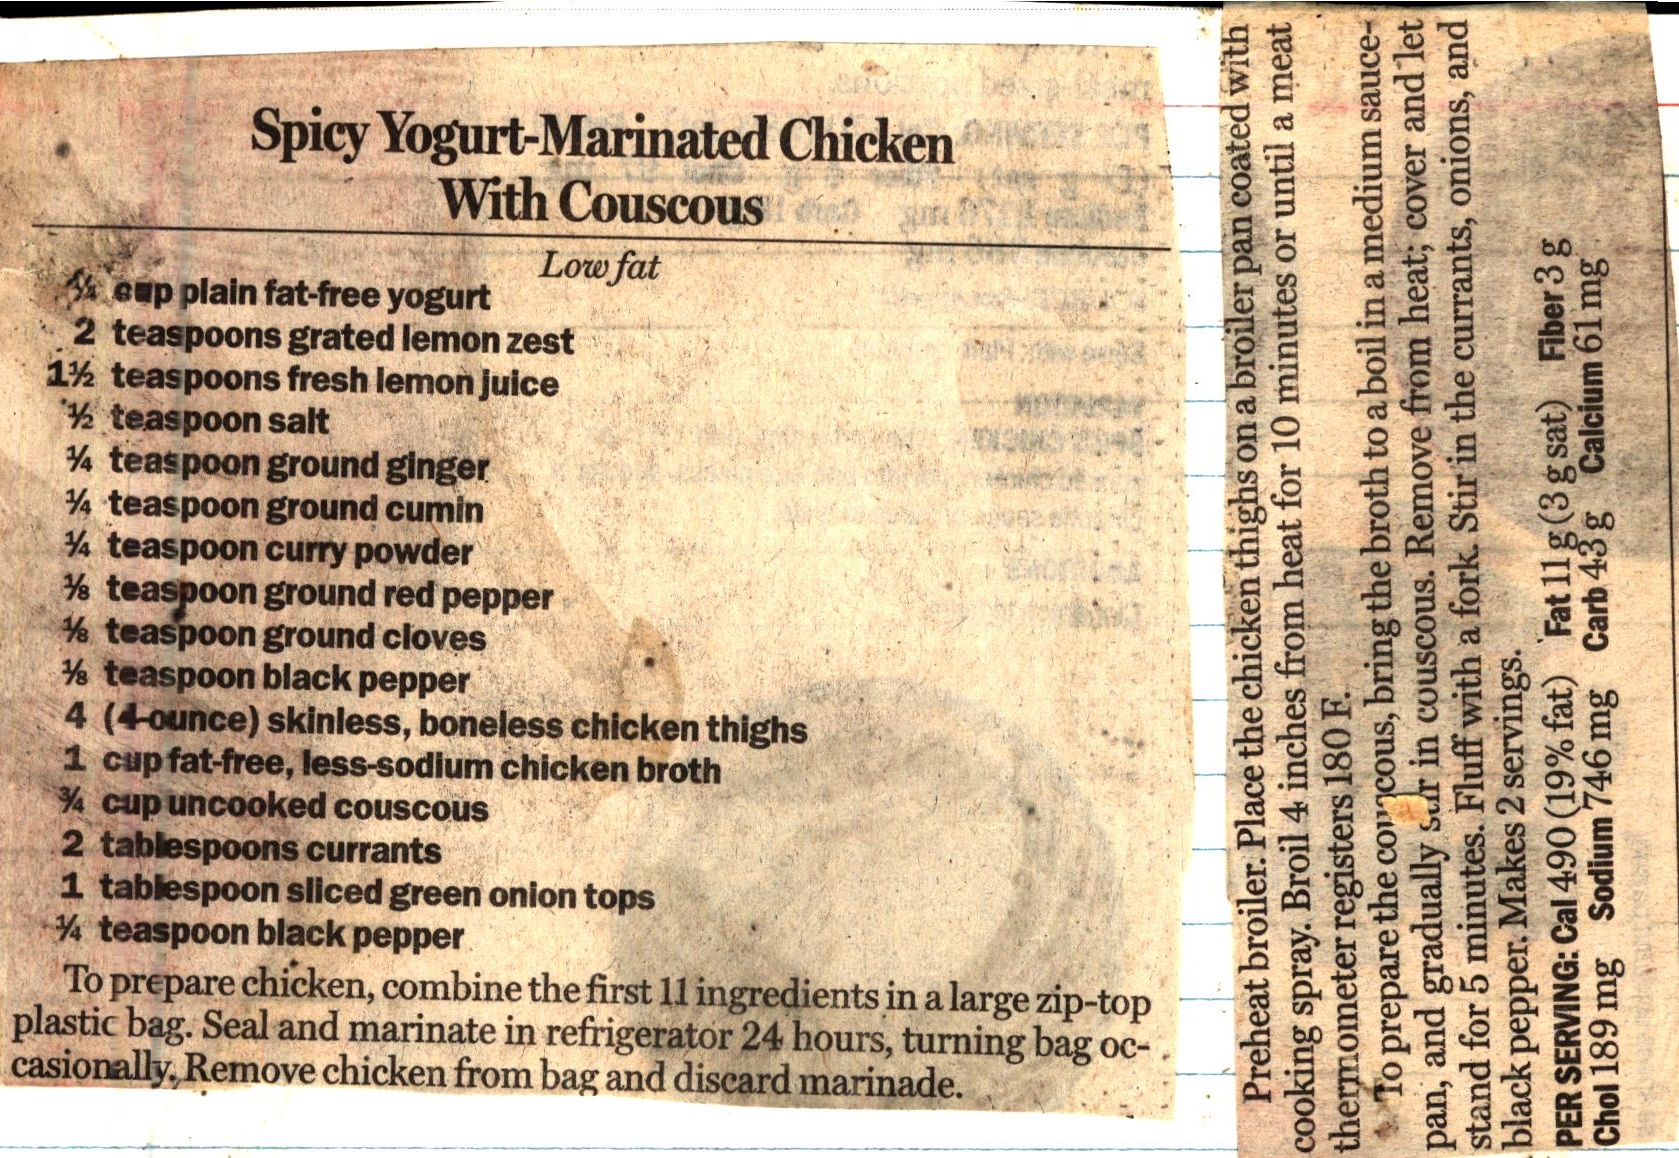 Spicy Yogurt-Marinated Chicken
With Couscous
Low fat
¼ cup plain fat-free yogurt
2 teaspoons grated lemon zest
1½ teaspoons fresh lemon juice
½ teaspoon salt
¼ teaspoon ground ginger
¼ teaspoon ground cumin
¼ teaspoon curry powder
⅛ teaspoon ground red pepper
⅛ teaspoon ground cloves
⅛ teaspoon black pepper
4 (4-ounce) skinless, boneless chicken thighs
1 cup fat-free, less-sodium chicken broth
¾ cup uncooked couscous
2 tablespoons currants
1 tablespoon sliced green onion tops
¼ teaspoon black pepper
To prepare chicken, combine the first 11 ingredients in a large zip-top
plastic bag. Seal and marinate in refrigerator 24 hours, turning bag oc-
casionally. Remove chicken from bag and discard marinade.
Preheat broiler. Place the chicken thighs on a broiler pan coated with
cooking spray. Broil 4 inches from heat for 10 minutes or until a meat
thermometer registers 180 F.
To prepare the couscous, bring the broth to a boil in a medium sauce-
pan, and gradually stir in couscous. Remove from heat; cover and let
stand for 5 minutes. Fluff with a fork. Stir in the currants, onions, and
black pepper. Makes 2 servings.
PER SERVING: Cal 490 (19% fat) Fat 11 g (3 g sat) Fiber 3 g
Chol 189 mg Sodium 746 mg Carb 43 g Calcium 61 mg